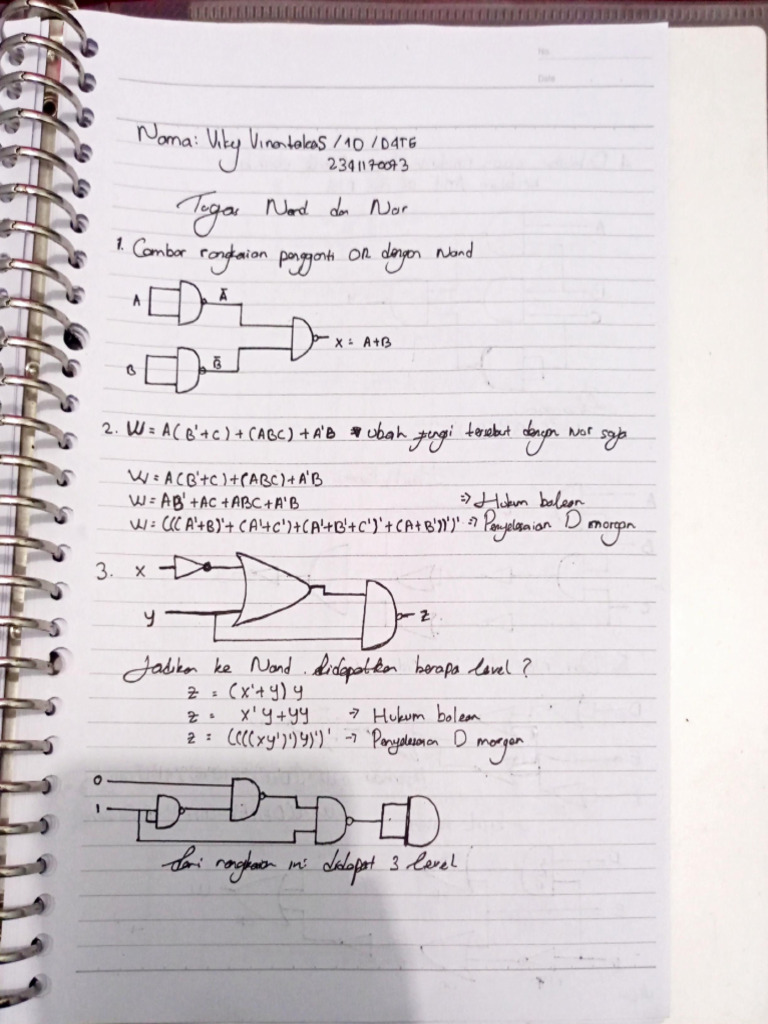 No.
Date
Nama: Viky Vinantakas / 10 / D4TE
2341170073
Tugas Nand dan Nor
1. Gambar rangkaian pengganti OR dengan Nand
A Ā
X = A+B
B B̄
2. W = A(B'+C) + (ABC) + A'B ubah fungsi tersebut dengan nor saja
W = A(B'+C) + (ABC) + A'B
W = AB' + AC + ABC + A'B => Hukum bolean
W = (((A'+B)' + (A'+C')+(A'+B'+C')' + (A+B'))')' => Penyelesaian D morgan
3. X
y z
Jadikan ke Nand. Didapatkan berapa level ?
z = (x'+y) y
z = x'y + yy → Hukum bolean
z = ((((xy')')y)')' → Penyelesaian D morgan
0
1
dari rangkaian ini didapat 3 level